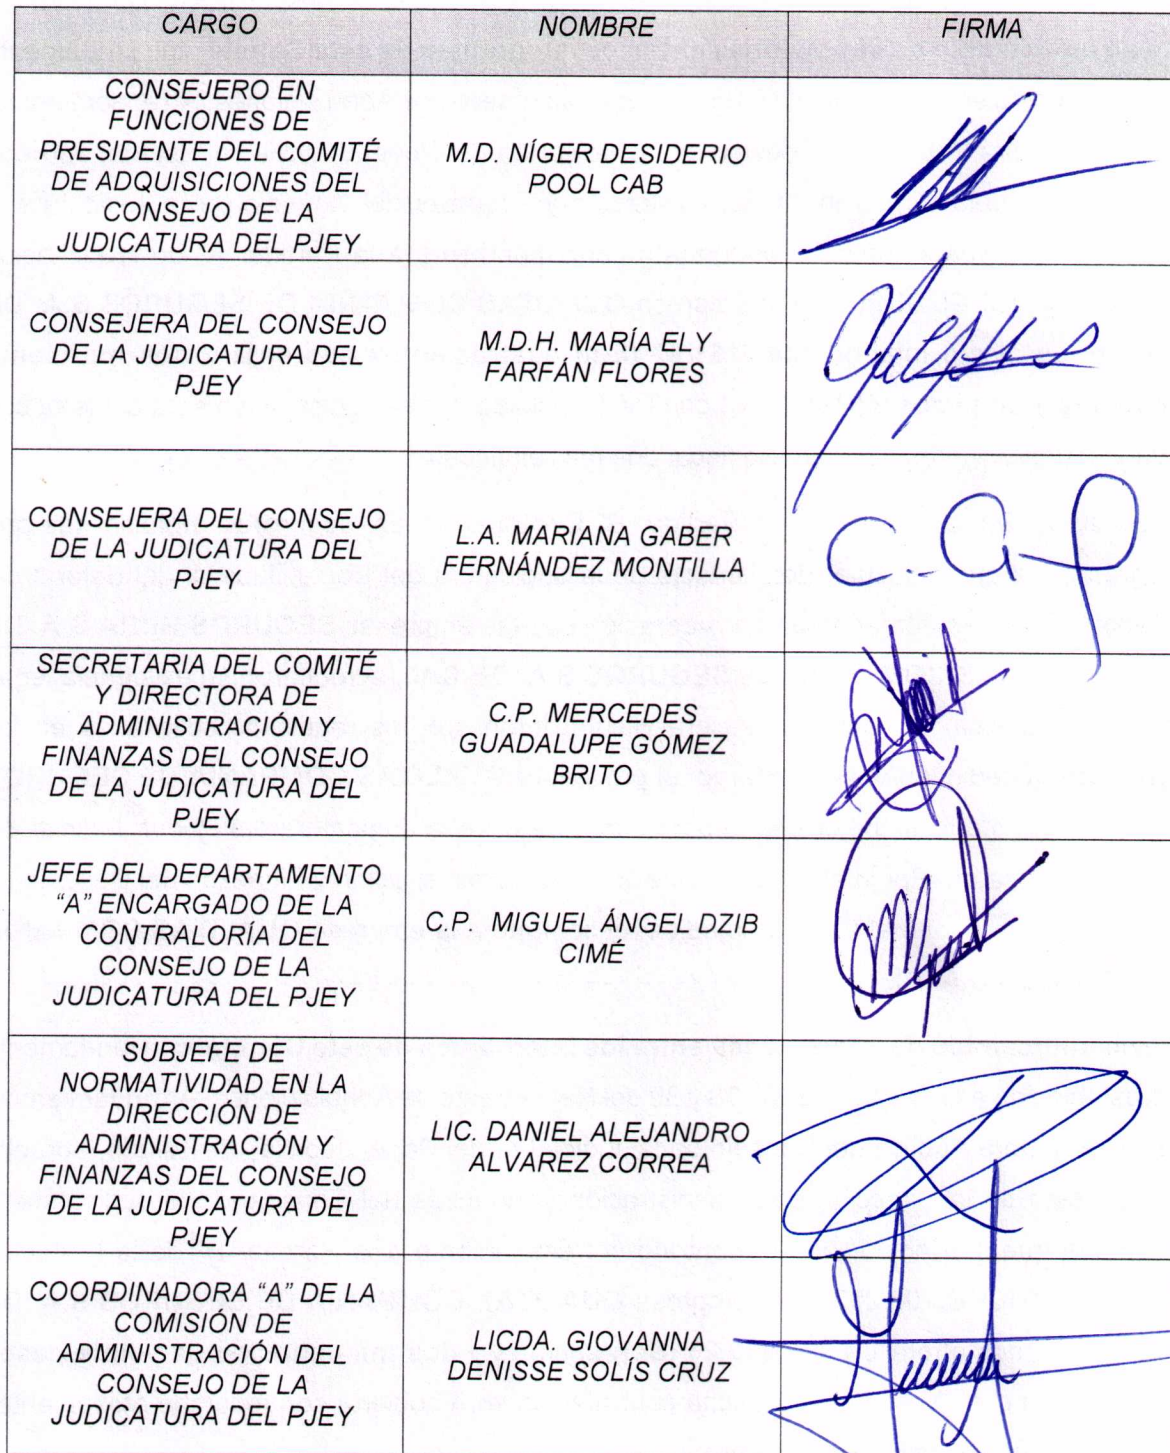 CARGO NOMBRE FIRMA
CONSEJERO EN
FUNCIONES DE
PRESIDENTE DEL COMITÉ
DE ADQUISICIONES DEL
CONSEJO DE LA
JUDICATURA DEL PJEY
M.D. NÍGER DESIDERIO
POOL CAB
CONSEJERA DEL CONSEJO
DE LA JUDICATURA DEL
PJEY
M.D.H. MARÍA ELY
FARFÁN FLORES
CONSEJERA DEL CONSEJO
DE LA JUDICATURA DEL
PJEY
L.A. MARIANA GABER
FERNÁNDEZ MONTILLA
SECRETARIA DEL COMITÉ
Y DIRECTORA DE
ADMINISTRACIÓN Y
FINANZAS DEL CONSEJO
DE LA JUDICATURA DEL
PJEY
C.P. MERCEDES
GUADALUPE GÓMEZ
BRITO
JEFE DEL DEPARTAMENTO
“A” ENCARGADO DE LA
CONTRALORÍA DEL
CONSEJO DE LA
JUDICATURA DEL PJEY
C.P. MIGUEL ÁNGEL DZIB
CIMÉ
SUBJEFE DE
NORMATIVIDAD EN LA
DIRECCIÓN DE
ADMINISTRACIÓN Y
FINANZAS DEL CONSEJO
DE LA JUDICATURA DEL
PJEY
LIC. DANIEL ALEJANDRO
ALVAREZ CORREA
COORDINADORA “A” DE LA
COMISIÓN DE
ADMINISTRACIÓN DEL
CONSEJO DE LA
JUDICATURA DEL PJEY
LICDA. GIOVANNA
DENISSE SOLÍS CRUZ